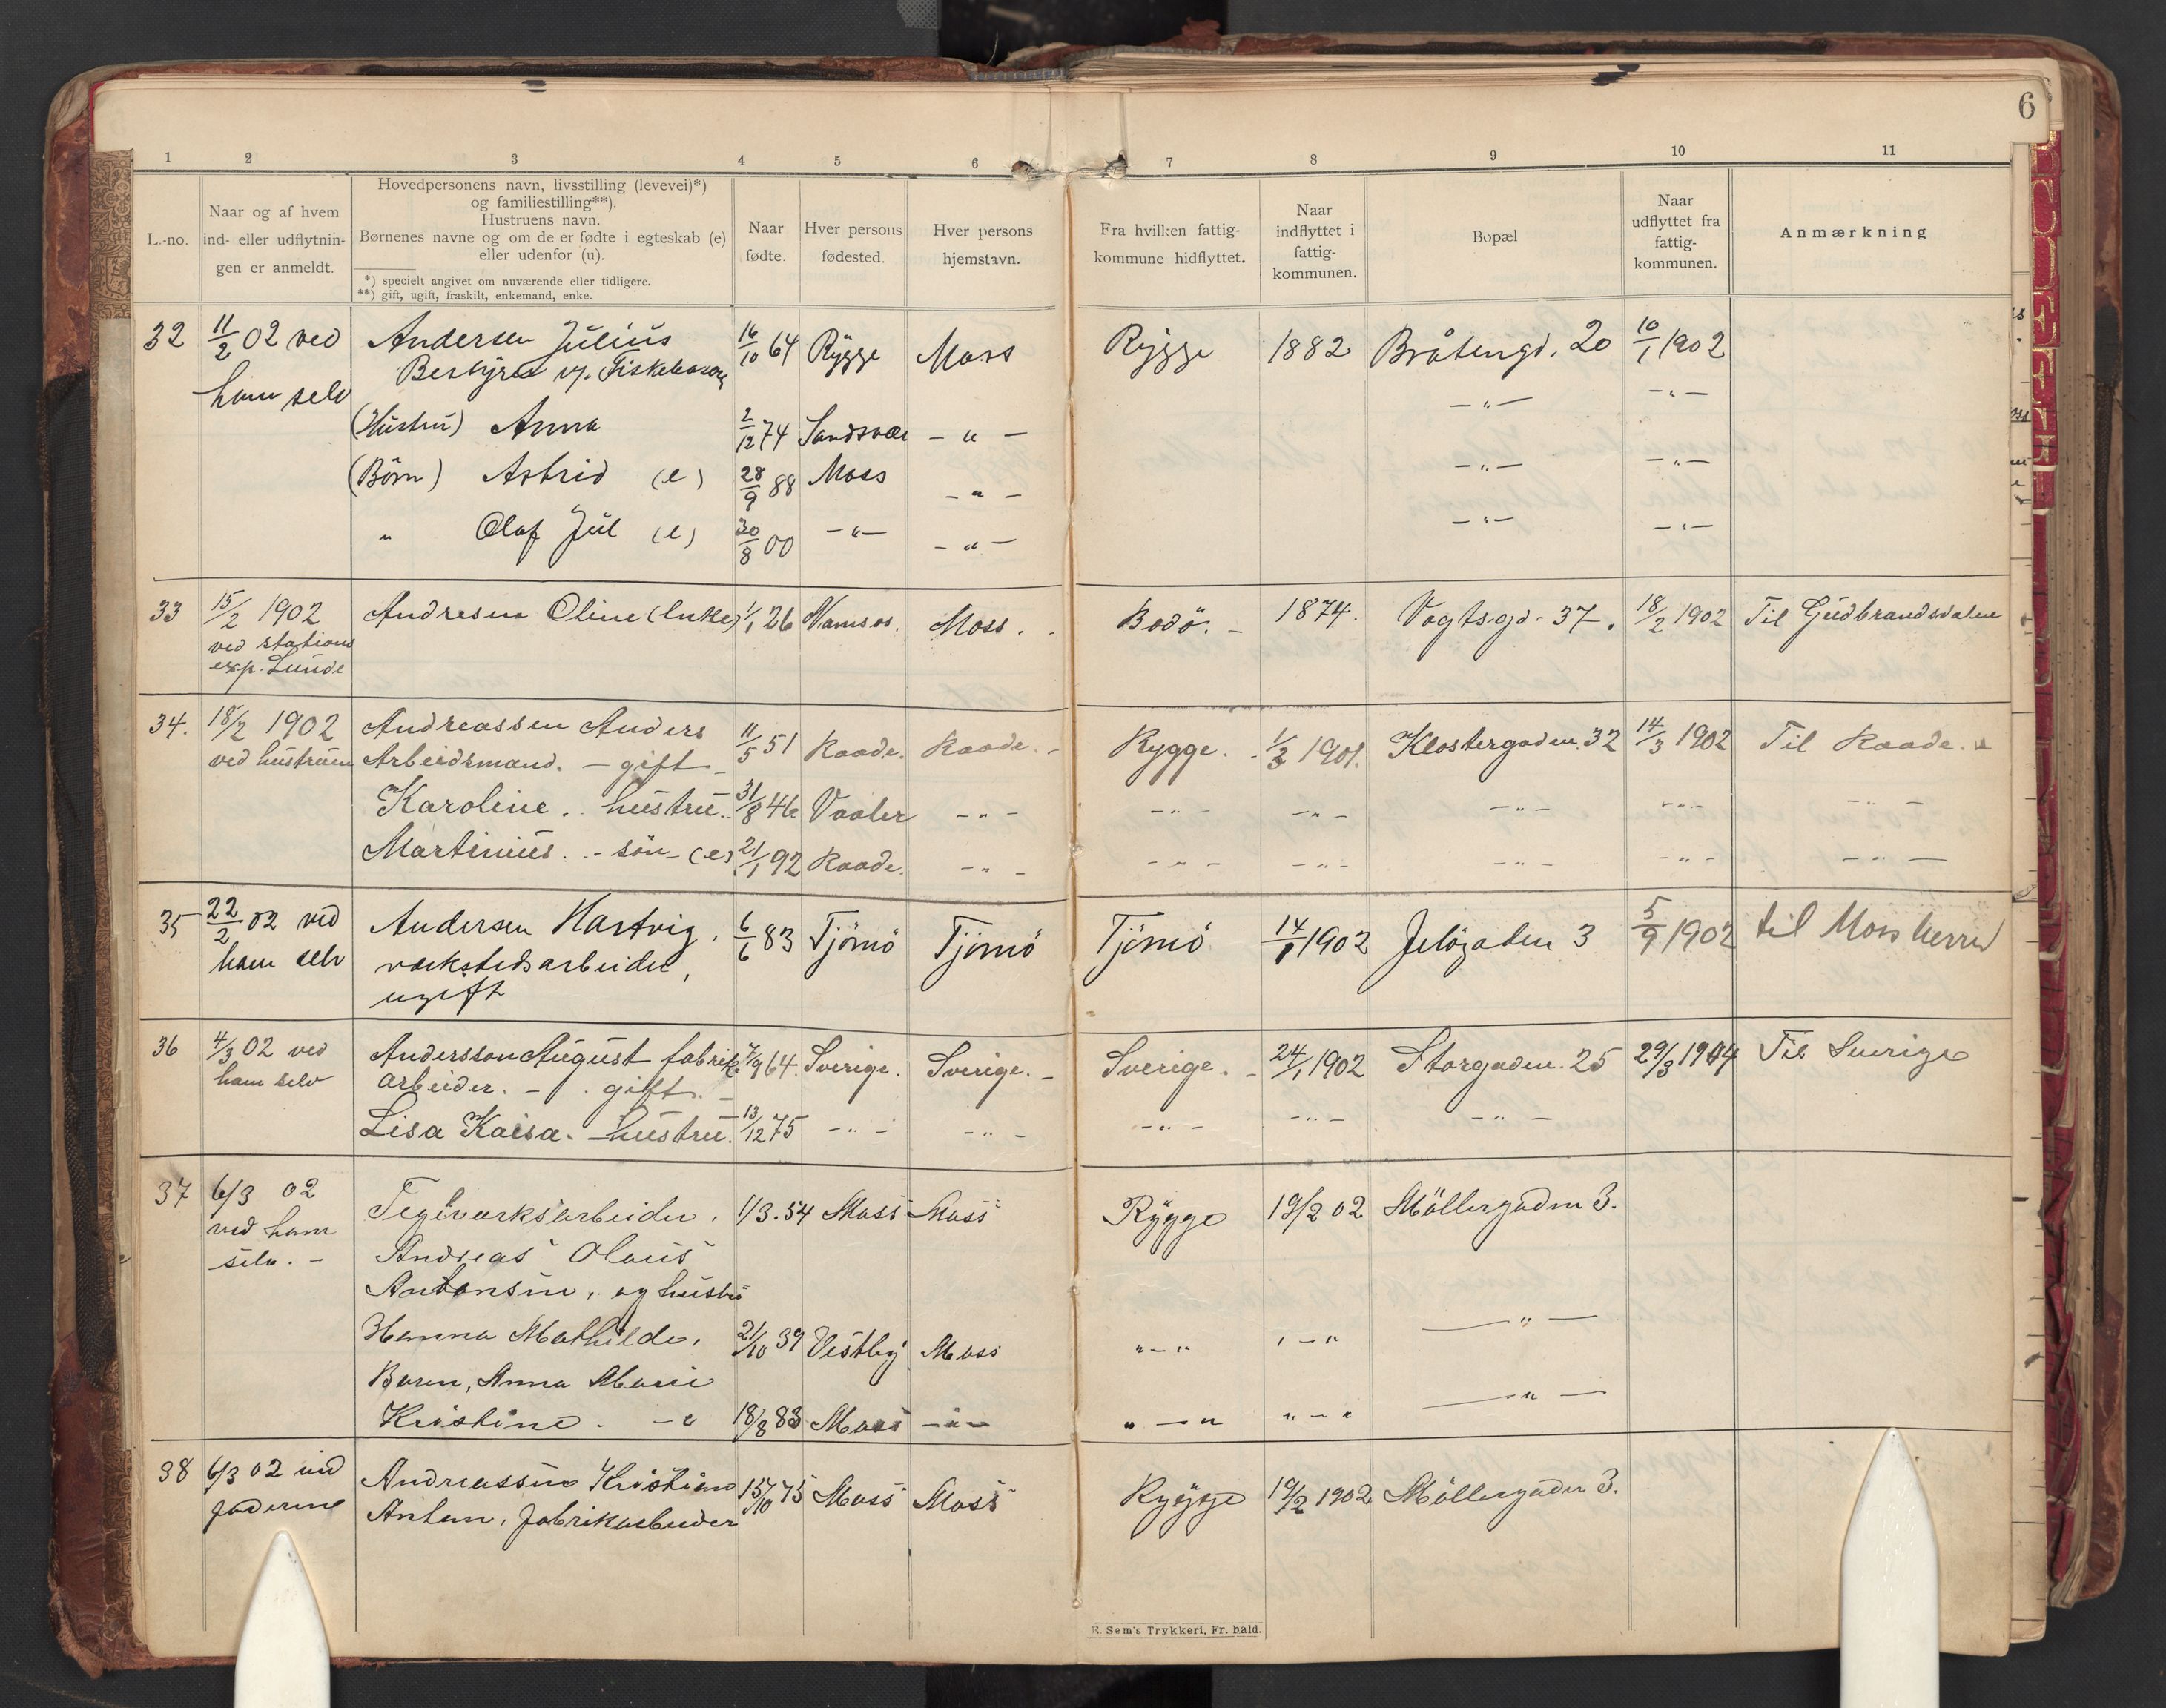 6
1 2 3 4 5 6 7 8 9 10 11
L.-no.
Naar og af hvem
ind- eller udflytnin-
gen er anmeldt.
Hovedpersonens navn, livsstilling (levevei)*)
og familiestilling**).
Hustruens navn.
Børnenes navne og om de er fødte i egteskab (e)
eller udenfor (u).
*) specielt angivet om nuværende eller tidligere.
**) gift, ugift, fraskilt, enkemand, enke.
Naar
fødte.
Hver persons
fødested.
Hver persons
hjemstavn.
Fra hvilken fattig-
kommune hidflyttet.
Naar
indflyttet i
fattig-
kommunen.
Bopæl
Naar
udflyttet fra
fattig-
kommunen.
Anmærkning
32 11/2 02 ved Andersen Julius 16/10 64 Rygge Moss Rygge 1882 Bråtengd. 20 10/1 1902
ham selv Bestyrer
-"- -"-
(Hustru) Anna 2/12 74 Sandsvær -"-
(Börn) Astrid (e) 28/9 88 Moss -"- -"- -"-
" Olaf Jul (e) 30/8 00 -"- -"- -"- -"-
33 15/2 1902 Andresen Oline (Enke) 1/1 26 Namsos. Moss. Bodö. 1874. Vogtsgd. 37. 18/2 1902 Til Gudbrandsdalen
ved stations
exp. Lunde
34. 18/2 1902 Andreassen Anders 11/5 51 Raade. Raade. Rygge. 1/3 1901. Klostergaden. 32 14/3 1902 Til Raade.
ved hustruen Arbeidsmand. - gift -
Karoline. hustru. 31/8 46 Vaaler -"- -"- -"- -"- -"- -"-
Martinius. - sön - (e) 21/1 92 Raade. -"- -"- -"- -"- -"- -"-
35 22/2 02 ved Andersen Hartvig, 6/6 83 Tjömö Tjömö Tjömö 14/1 1902 Jelögaden 3 5/9 1902 til Moss herred
ham selv værkstedsarbeider,
ugift
36 4/3 02 ved Andersson August fabrik 7/9 64. Sverige. Sverige. - Sverige. - 24/1 1902 Storgaden. 25 29/3 1904 Til Sverige
ham selv arbeider. - gift. -
Lisa Kaisa. - hustru. 13/12 75 -"- -"- -"- -"- -"-
37 6/3 02 Teglverksarbeider, 1/3. 54 Moss Moss Rygge 19/2 02 Möllergaden 3.
ved ham
selv. - Andreas Olaus
Antonsen, og hustru
Hanna Mathilde, 21/10 39 Vestby Moss "-" "-" -"-
Barn, Anna Marie
Kristine. - e 18/8 83 Moss -"- "-" "-" -"-
38 6/3 02 ved Andreassen Kristian 15/10 75 Moss Moss Rygge 19/2 1902 Möllergaden 3.
faderen Anton, fabrikarbeider
E. Sem's Trykkeri, Fr. hald.